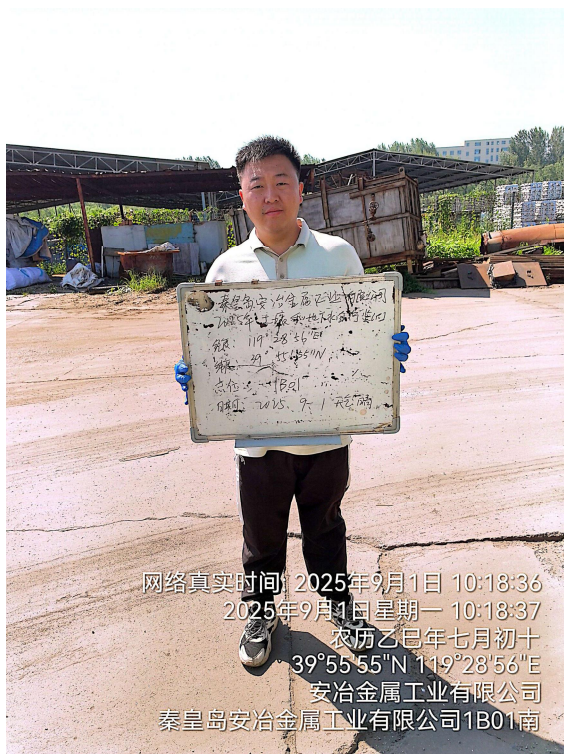 秦皇岛安冶金属工业有限公司
2025年土壤和地下水自行监测
经度: 119°28'56"E
纬度: 39°55'55"N
点位:
日期: 2025. 9. 1
网络真实时间: 2025年9月1日 10:18:36
2025年9月1日星期一 10:18:37
农历乙巳年七月初十
39°55'55"N 119°28'56"E
安冶金属工业有限公司
秦皇岛安冶金属工业有限公司1B01南